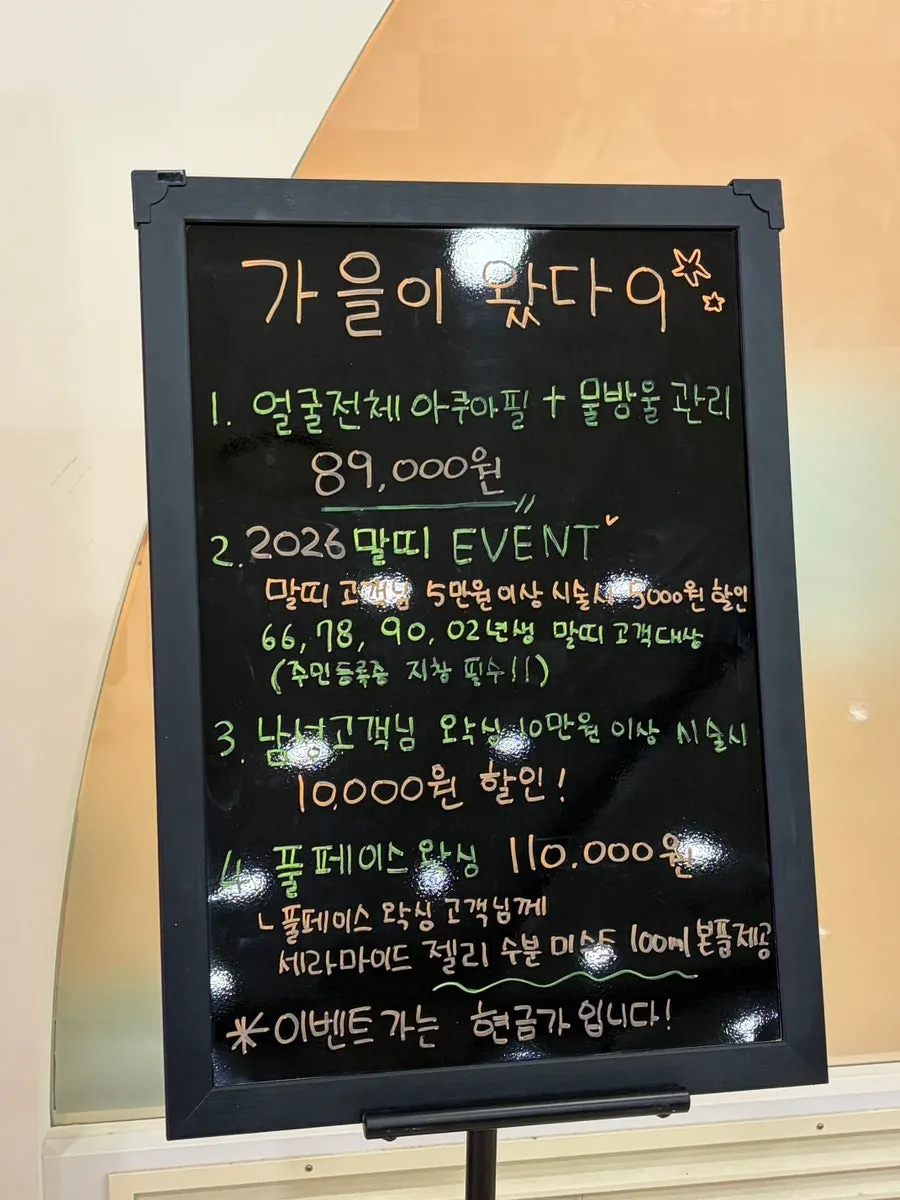 가을이 왔다9
1. 얼굴전체 아쿠아필 + 물방울 관리
89,000원
2. 2026 말띠 EVENT
말띠 고객님 5만원 이상 시술시 5000원 할인
66, 78, 90, 02년생 말띠 고객대상
(주민등록증 지창 필수!!)
3. 남성고객님 왁싱 10만원 이상 시술시
10,000원 할인!
4. 풀페이스 왁싱 110.000원
ㄴ풀페이스 왁싱 고객님께
세라마이드 젤리 수분 미스트 100ml 본품제공
* 이벤트가는 현금가 입니다!